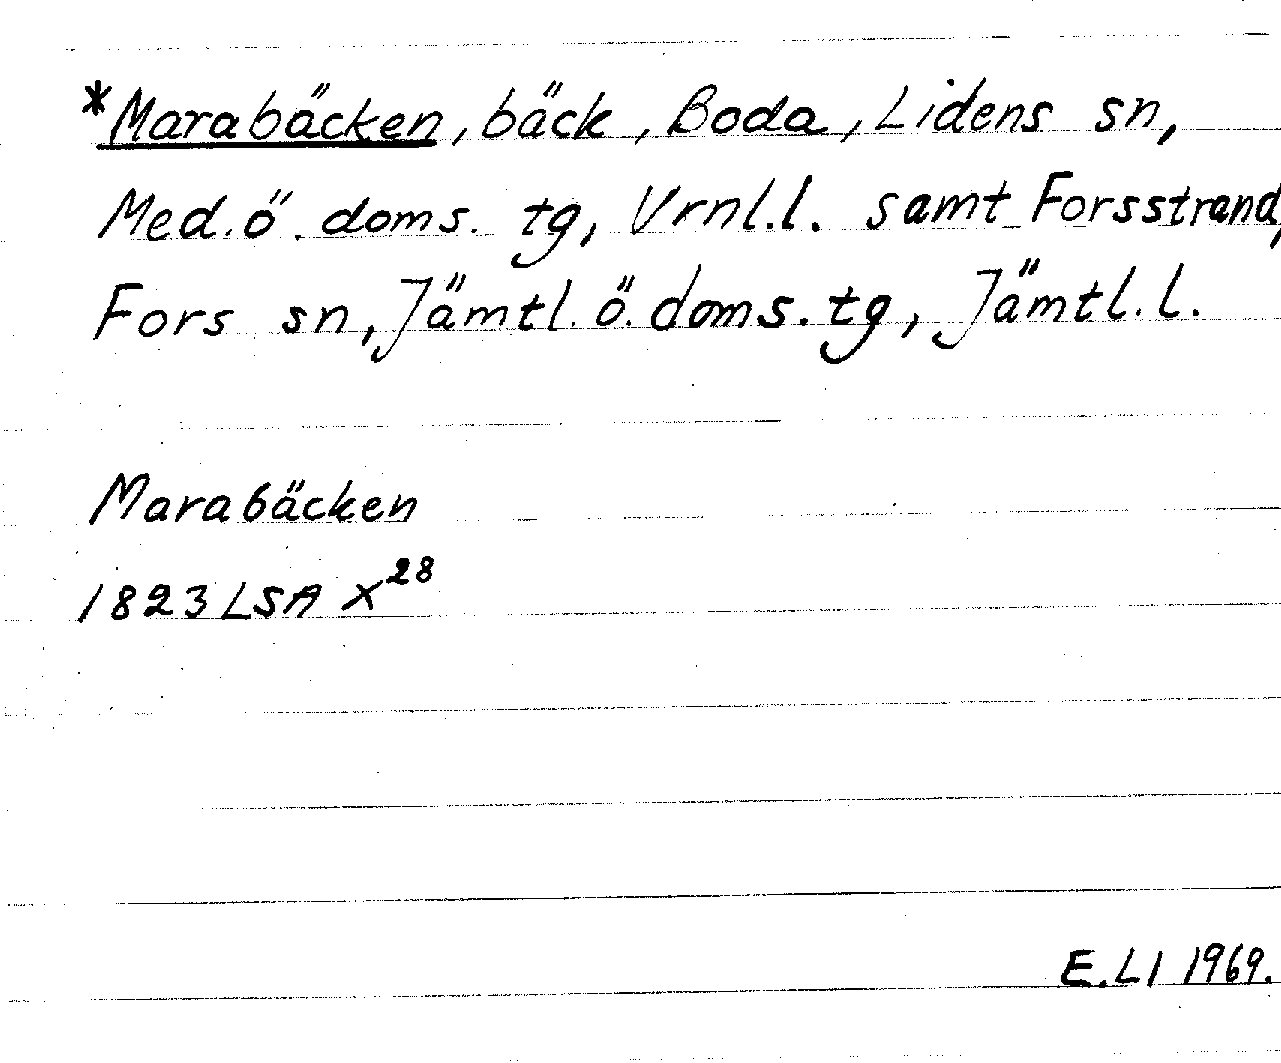 *Marabäcken, bäck, Boda, Lidens sn,
Med.ö. doms. tg, Vrnl.l. samt Forsstrand,
Fors sn, Jämtl.ö.doms.tg, Jämtl.l.
Marabäcken
1823 LSA X28
E.LI 1969.